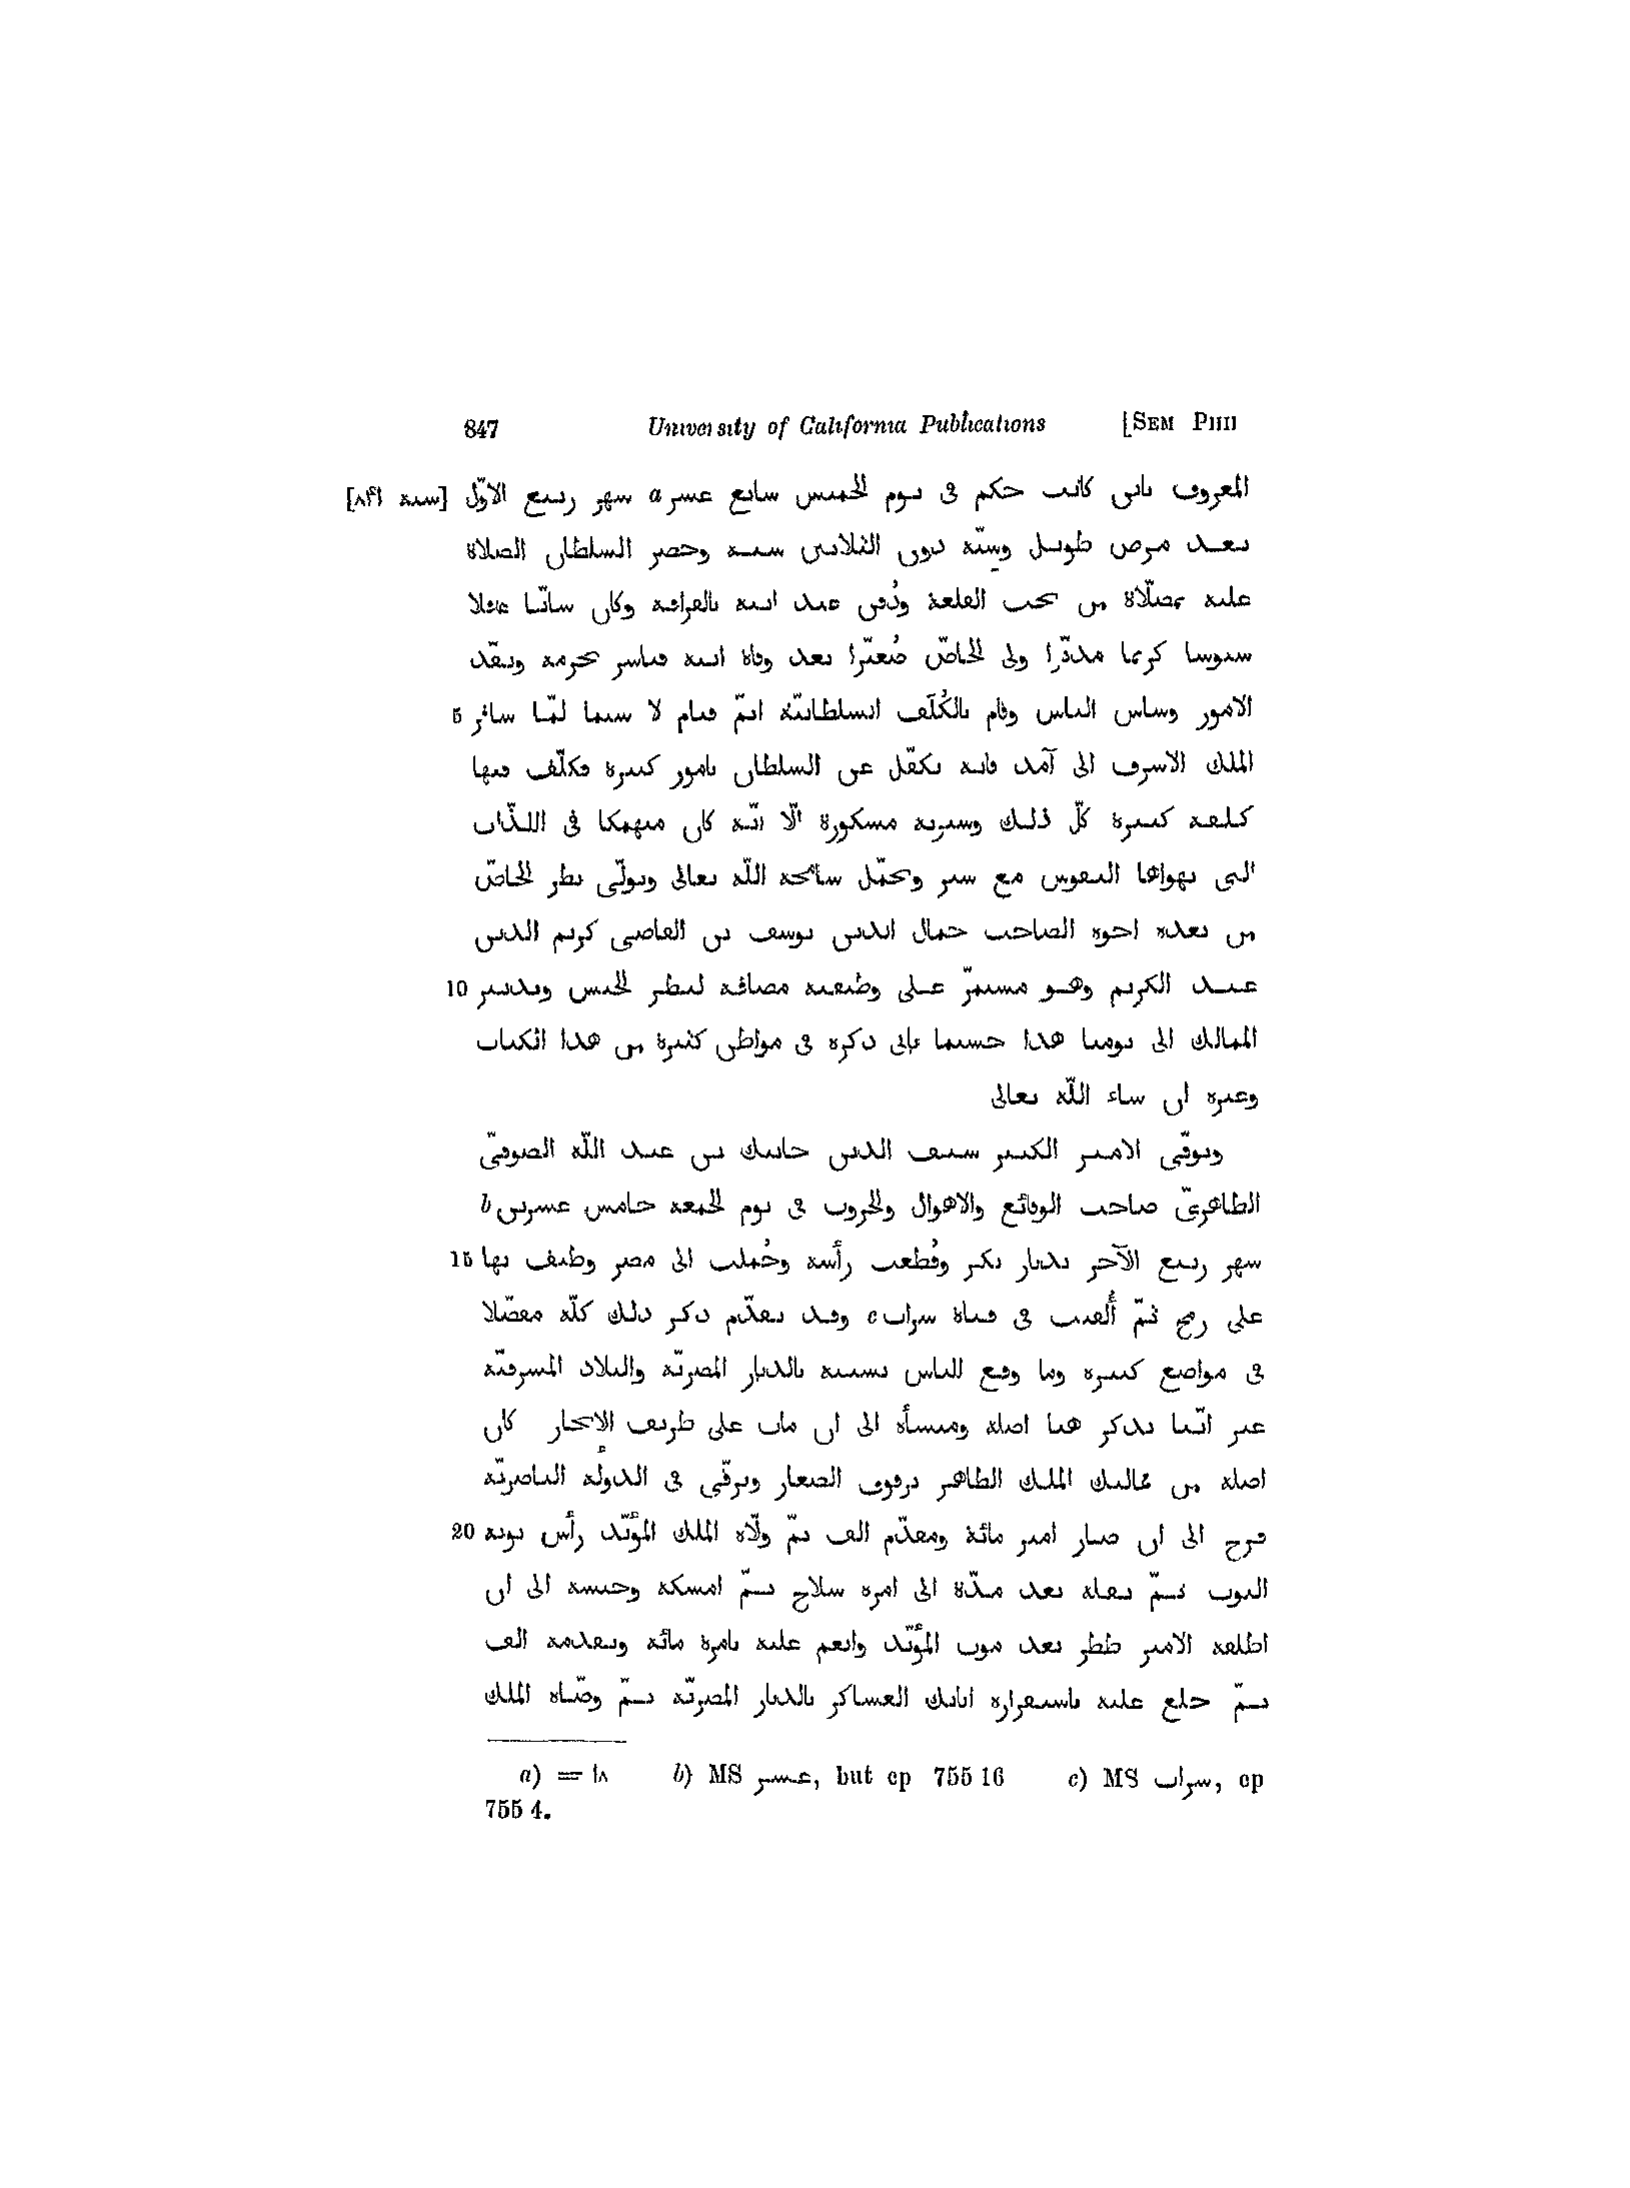 847 University of California Publications [SEM PHIL
المعروف بابن كاتب جكم فى يوم الخميس سابع عشر a شهر ربيع الاوّل [سنة ٨۴١]
بعد مرض طويل وسِنّه دون الثلاثين سنة وحضر السلطان الصلاة
عليه بمصلّاة من تحت القلعة ودُفن عند ابيه بالقرافة وكان شابّا عاقلا
سيوسا كريما مدبّرا ولى الخاصّ صُغيّرا بعد وفاة ابيه فباشر بحرمة ونفّذ
الامور وساس الناس وقام بالكُلَف السلطانيّة اتمّ قيام لا سيما لمّا سافر 5
الملك الاشرف الى آمد فانه تكفّل عن السلطان بامور كثيرة تكلّف فيها
كلفة كبيرة كلّ ذلك وسيرته مشكورة الّا انّه كان منهمكا فى اللذّات
التى تهواها النفوس مع ستر وتجمّل سامحه اللّه تعالى وتولّى نظر الخاصّ
من بعده اخوه الصاحب جمال الدين يوسف بن القاضى كريم الدين
عبد الكريم وهو مستمرّ على وظيفته مضافة لنظر الجيش وتدبير 10
الممالك الى يومنا هذا حسبما ياتى ذكره فى مواطن كثيرة من هذا الكتاب
وغيره ان شاء اللّه تعالى
وتوفّى الامير الكبير سيف الدين جانبك بن عبد اللّه الصوفىّ
الظاهرىّ صاحب الوقائع والاهوال والحروب فى يوم الجمعة خامس عشرين b
شهر ربيع الآخر بديار بكر وقُطعت رأسه وحُملت الى مصر وطيف بها 15
على رمح ثمّ أُلقيت فى قناة سراب c وقد تقدّم ذكر ذلك كلّه مفصّلا
فى مواضع كثيرة وما وقع للناس بسببه بالديار المصريّة والبلاد المشرقيّة
غير انّنا نذكر هنا اصله ومنشأه الى ان مات على طريق الايجاز كان
اصله من مماليك الملك الظاهر برقوق الصغار وترقّى فى الدولة الناصريّة
فرج الى ان صار امير مائة ومقدّم الف ثمّ ولّاه الملك المؤيّد رأس نوبة 20
النوب ثمّ نقله بعد مدّة الى امره سلاح ثمّ امسكه وحبسه الى ان
اطلقه الامير ططر بعد موت المؤيّد وانعم عليه بامرة مائة وتقدمة الف
ثمّ خلع عليه باستقراره اتابك العساكر بالديار المصريّة ثمّ وصّاه الملك
a) = ١٨ b) MS عشر, but cp 755 16 c) MS سراب, cp
755 4.